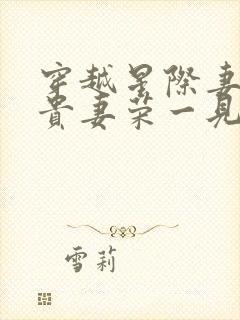 穿越星際妻
貴妻荣一見
雪莉